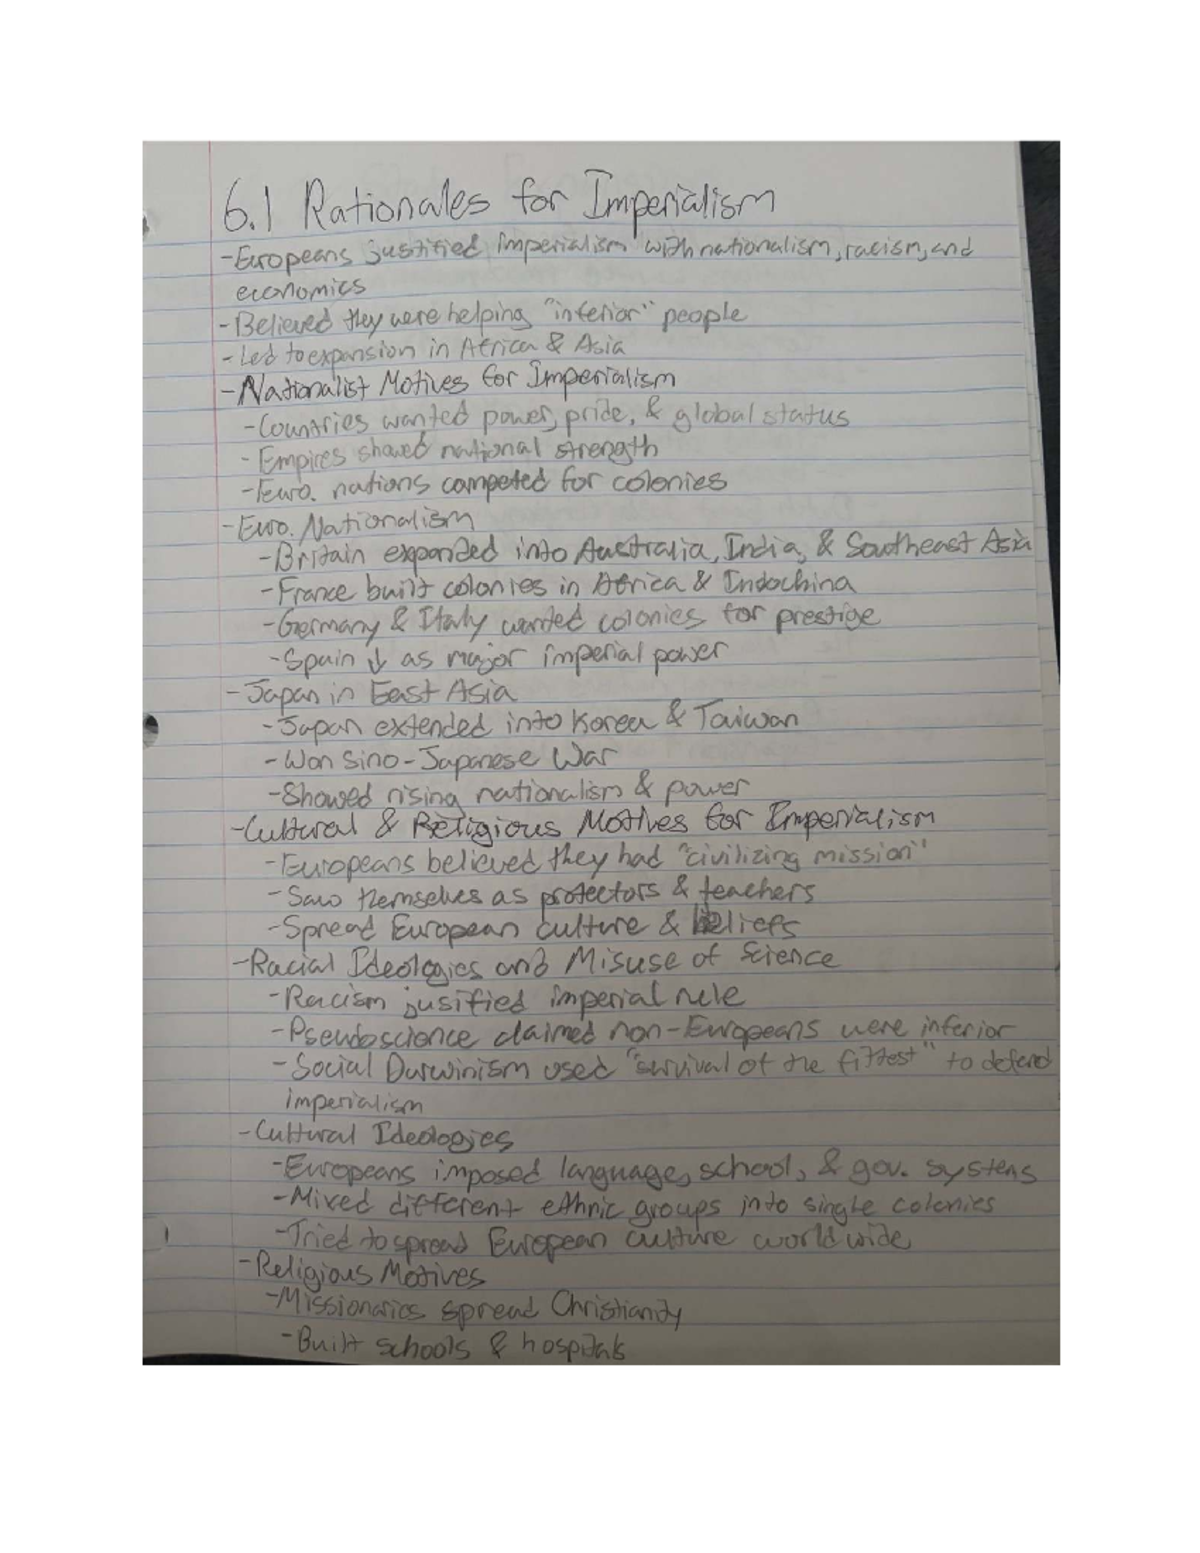 6.1 Rationales for Imperialism
-Europeans justified imperialism with nationalism, racism, and
economics
-Believed they were helping "inferior" people
-Led to expansion in Africa & Asia
-Nationalist Motives for Imperialism
-Countries wanted power, pride, & global status
-Empires showed national strength
-Euro. nations competed for colonies
-Euro. Nationalism
-Britain expanded into Australia, India, & Southeast Asia
-France built colonies in Africa & Indochina
-Germany & Italy wanted colonies for prestige
-Spain ↓ as major imperial power
-Japan in East Asia
-Japan extended into Korea & Taiwan
-Won Sino-Japanese War
-Showed rising nationalism & power
-Cultural & Religious Motives for Imperialism
-Europeans believed they had "civilizing mission"
-Saw themselves as protectors & teachers
-Spread European culture & beliefs
-Racial Ideologies and Misuse of Science
-Racism jusified imperial rule
-Pseudoscience claimed non-Europeans were inferior
-Social Darwinism used "survival of the fittest" to defend
imperialism
-Cultural Ideologies
-Europeans imposed language, school, & gov. systems
-Mixed different ethnic groups into single colonies
-Tried to spread European culture worldwide
-Religious Motives
-Missionaries spread Christianity
-Built schools & hospitals